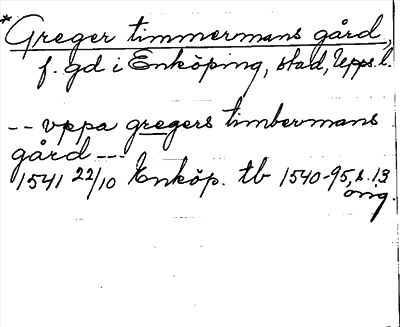 *Greger timmermans gård,
f. gd i Enköping, stad, Upps. l.
-- vppa gregers timbermans
gård ---
1541 22/10 Enköp. tb 1540-95, s. 13
orig.